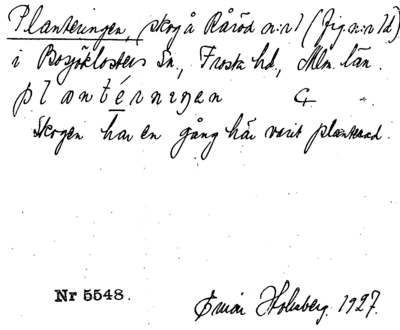 Planteringen, skog å Råröd n:r 1 (fig. n:r 1d)
i Bosjöklosters Sn, Frosta hd, Mlm. län.
plantérningen
Skogen har en gång här varit planterad.
Nr 5548.
Holmberg. 1927.